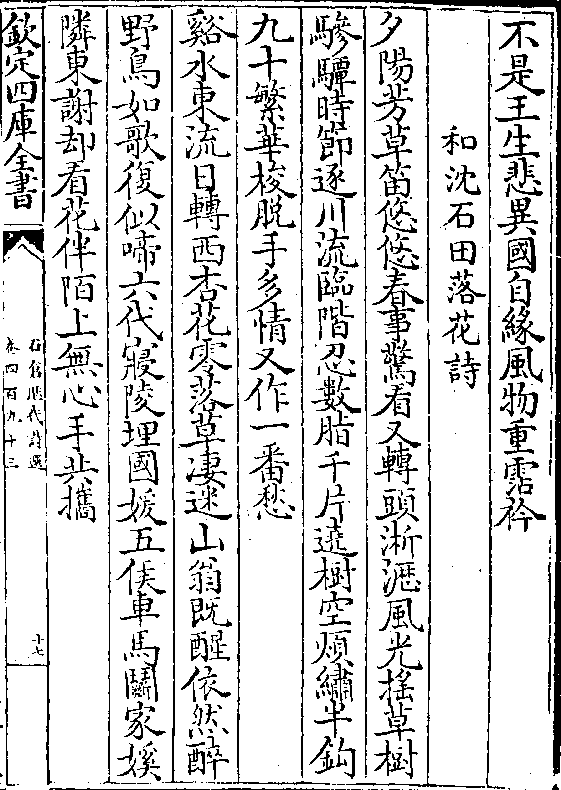 不是王生悲異國自緣風物重霑衿
和沈石田落花詩
夕陽芳草笛悠悠春事驚看又轉頭淅瀝風光搖草樹
驂驔時節逐川流臨階忍數脂千片遶樹空煩繡半鈎
九十繁華梭脱手多情又作一番愁
谿水東流日轉西杏花零落草凄迷山翁既醒依然醉
野鳥如歌復似啼六代寢陵埋國媛五侯車馬鬭家姬
隣東謝却看花伴陌上無心手共攜
欽定四庫全書
石倉歷代詩選
卷四百九十三
十七